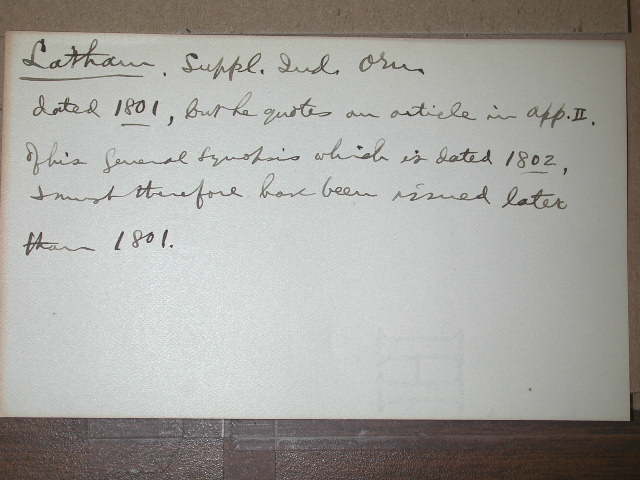 Latham. Suppl. Ind. Orn.
dated 1801, but he quotes an article in App. II.
of his General Synopsis which is dated 1802,
& must therefore have been issued later
than 1801.